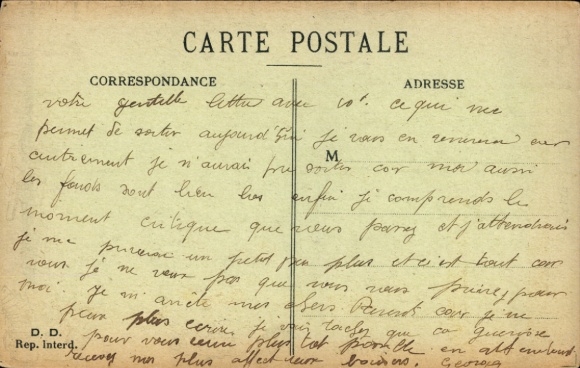 CARTE POSTALE
CORRESPONDANCE
ADRESSE
votre gentille lettre avec 10f. ce qui me
permet de sortir aujourd'hui je vous en remercie car
autrement je n'aurai pu sortir car moi aussi
M
les fonds sont bien bas enfin je comprends le
moment critique que vous passez et j'attendrais
je me priverai un petit peu plus et c'est tout car
vous je ne veux pas que vous vous priviez pour
moi. Je m'arrête mes chers Parents car je ne
peux plus écrire je vais tacher que ca guerisse
pour vous plus tot possible en attendant
recevez mes plus affectueux baisers. Georges
D. D.
Rep. Interd.